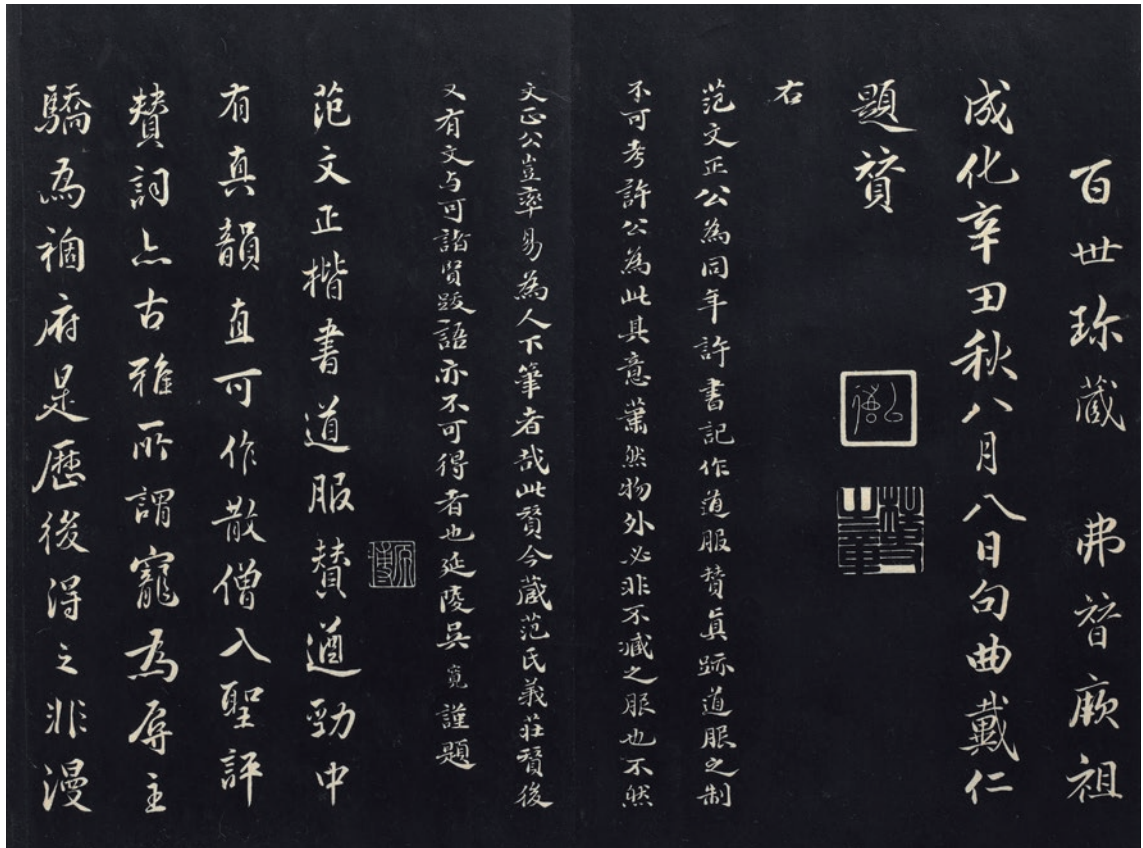 百世珎蔵弗替厥祖
成化辛丑秋八月八日句曲戴仁
題賛
右
范文正公為同年許書記作道服賛真跡道服之制
不可考許公為此其意蕭然物外必非不臧之服也不然
文正公豈率易為人下筆者哉此賛今蔵范氏義莊賛後
又有文与可諸賢跋語亦不可得者也延陵吳寬謹題
范文正楷書道服賛遒勁中
有真韻直可作散僧入聖評
賛詞亦古雅所謂寵為辱主
驕為禍府是歷後得之非漫